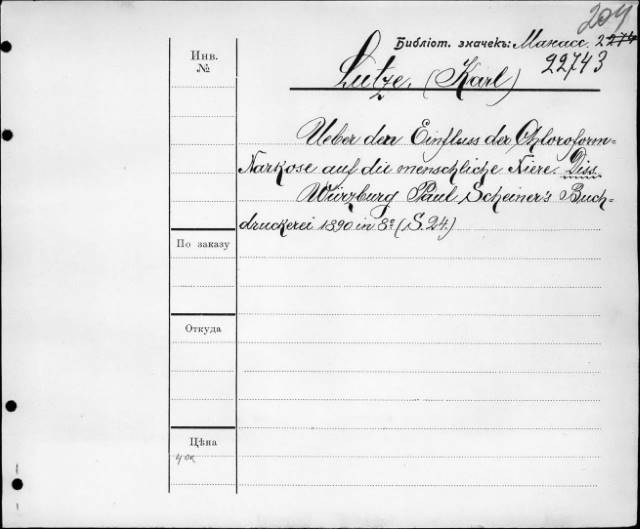 204
Библіот. значекъ: Манасс. 2274
22743
Инв.
№
Lutze. (Karl)
Ueber den Einfluss der Chloroform-
Narkose auf die menschliche Niere. Diss.
Würzburg Paul Scheiner's Buch-
druckerei 1890 in 8º (S. 24.)
По заказу
Откуда
Цѣна